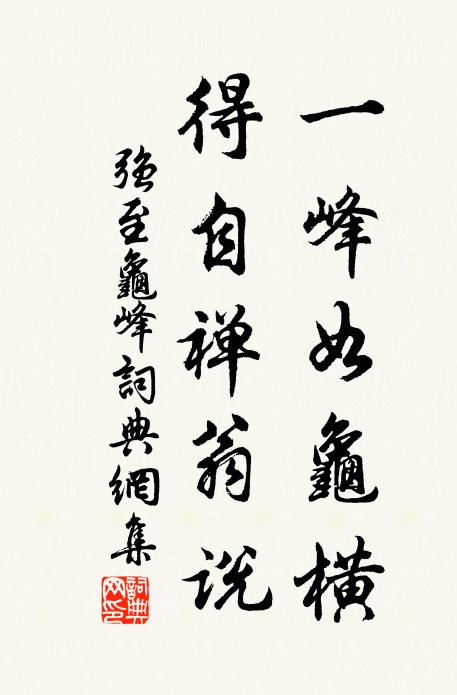 一峰如龜橫
得自禅翁説
强至龜峰詞典網集
詞典
网印